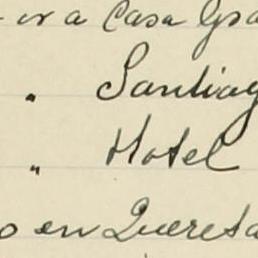 or a Casa Gra
" Santiag
" Hotel
o en Quereta